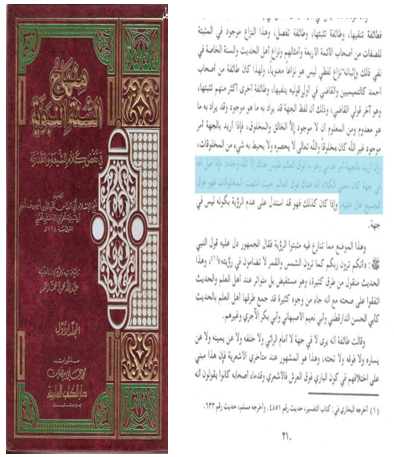 منهاج
السنة النبوية
في نقض كلام الشيعة والقدرية
الجزء الأول
دار الكتب العلمية
فطائفة تنفيها، وطائفة تثبتها، وطائفة تفصل، وهذا النزاع موجود في المثبتة
للصفات من أصحاب الأئمة الأربعة وأمثالهم ونزاع أهل الحديث والسنة الخاصة في
نفي ذلك وإثباته نزاع لفظي ليس هو نزاعا معنويا، ولهذا كان طائفة من أصحاب
أحمد كالتميميين والقاضي في أول قوليه ينفيها، وطائفة أخرى أكثر منهم تثبتها،
وهو آخر قولي القاضي، وذلك أن لفظ الجهة قد يراد به ما هو موجود وقد يراد به ما
هو معدوم ومن المعلوم أن لا موجود إلا الخالق والمخلوق، فإذا أريد بالجهة أمر
موجود غير الله كان مخلوقا والله تعالى لا يحصره ولا يحيط به شيء من المخلوقات،
وإن أريد بالجهة أمر عدمي وهو ما فوق العالم فليس هناك إلا الله وحده. فإذا قيل أنه
في جهة كان معنى الكلام أنه هناك فوق العالم حيث انتهت المخلوقات فهو فوق
الجميع عال عليه. وإذا كان كذلك فهو قد استدل على عدم الرؤية بكونه ليس في
جهة.
وهذا الموضع مما تنازع فيه مثبتوا الرؤية فقال الجمهور دل عليه قول النبي
ﷺ: «إنكم ترون ربكم كما ترون الشمس والقمر لا تضامون في رؤيته»(١)، وهذا
الحديث منقول من طرق كثيرة، وهو مستفيض بل متواتر عند أهل العلم والحديث
اتفقوا على صحته مع أنه جاء من وجوه كثيرة قد جمع طرقها أهل العلم بالحديث
كأبي الحسن الدارقطني وأبي نعيم الأصبهاني وأبي بكر الآجري وغيرهم.
وقالت طائفة أنه يرى لا في جهة لا أمام الرائي ولا خلفه ولا عن يمينه ولا عن
يساره ولا فوقه ولا تحته، وهذا هو المشهور عند متأخري الأشعرية فإن هذا مبني
على اختلافهم في كون الباري فوق العرش فالأشعري وقدماء أصحابه كانوا يقولون أنه
(١) أخرجه البخاري في: كتاب التفسير، حديث رقم ٤٨٥١. وأخرجه مسلم، حديث رقم ٦٣٣.
٣١٠